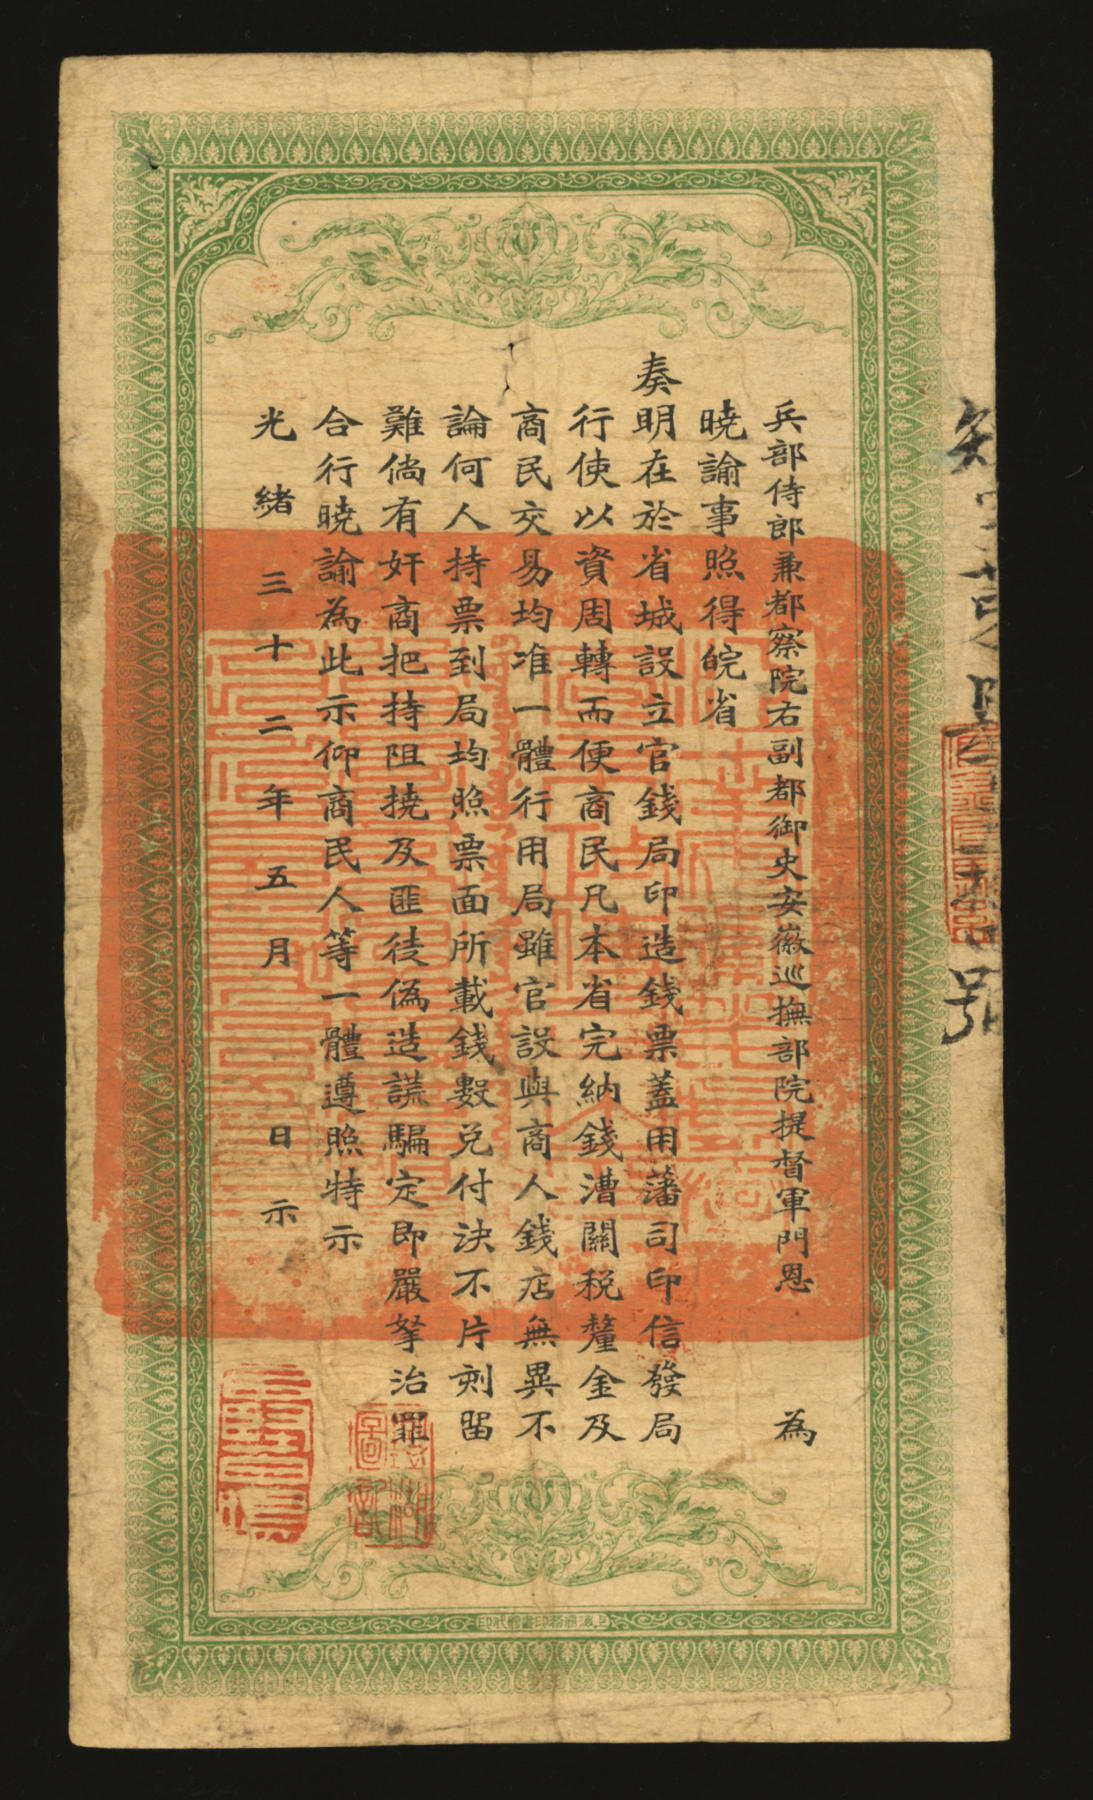 兵部侍郎兼都察院右副都御史安徽巡撫部院提督軍門恩 為
曉諭事照得皖省
奏明在於省城設立官錢局印造錢票蓋用藩司印信發局
行使以資周轉而便商民凡本省完納錢漕關税釐金及
商民交易均准一體行用局雖官設與商人錢店無異不
論何人持票到局均照票面所載錢數兑付決不片刻留
難倘有奸商把持阻撓及匪徒偽造誆騙定即嚴拏治罪
合行曉諭為此示仰商民人等一體遵照特示
光緒三十二年五月 日示